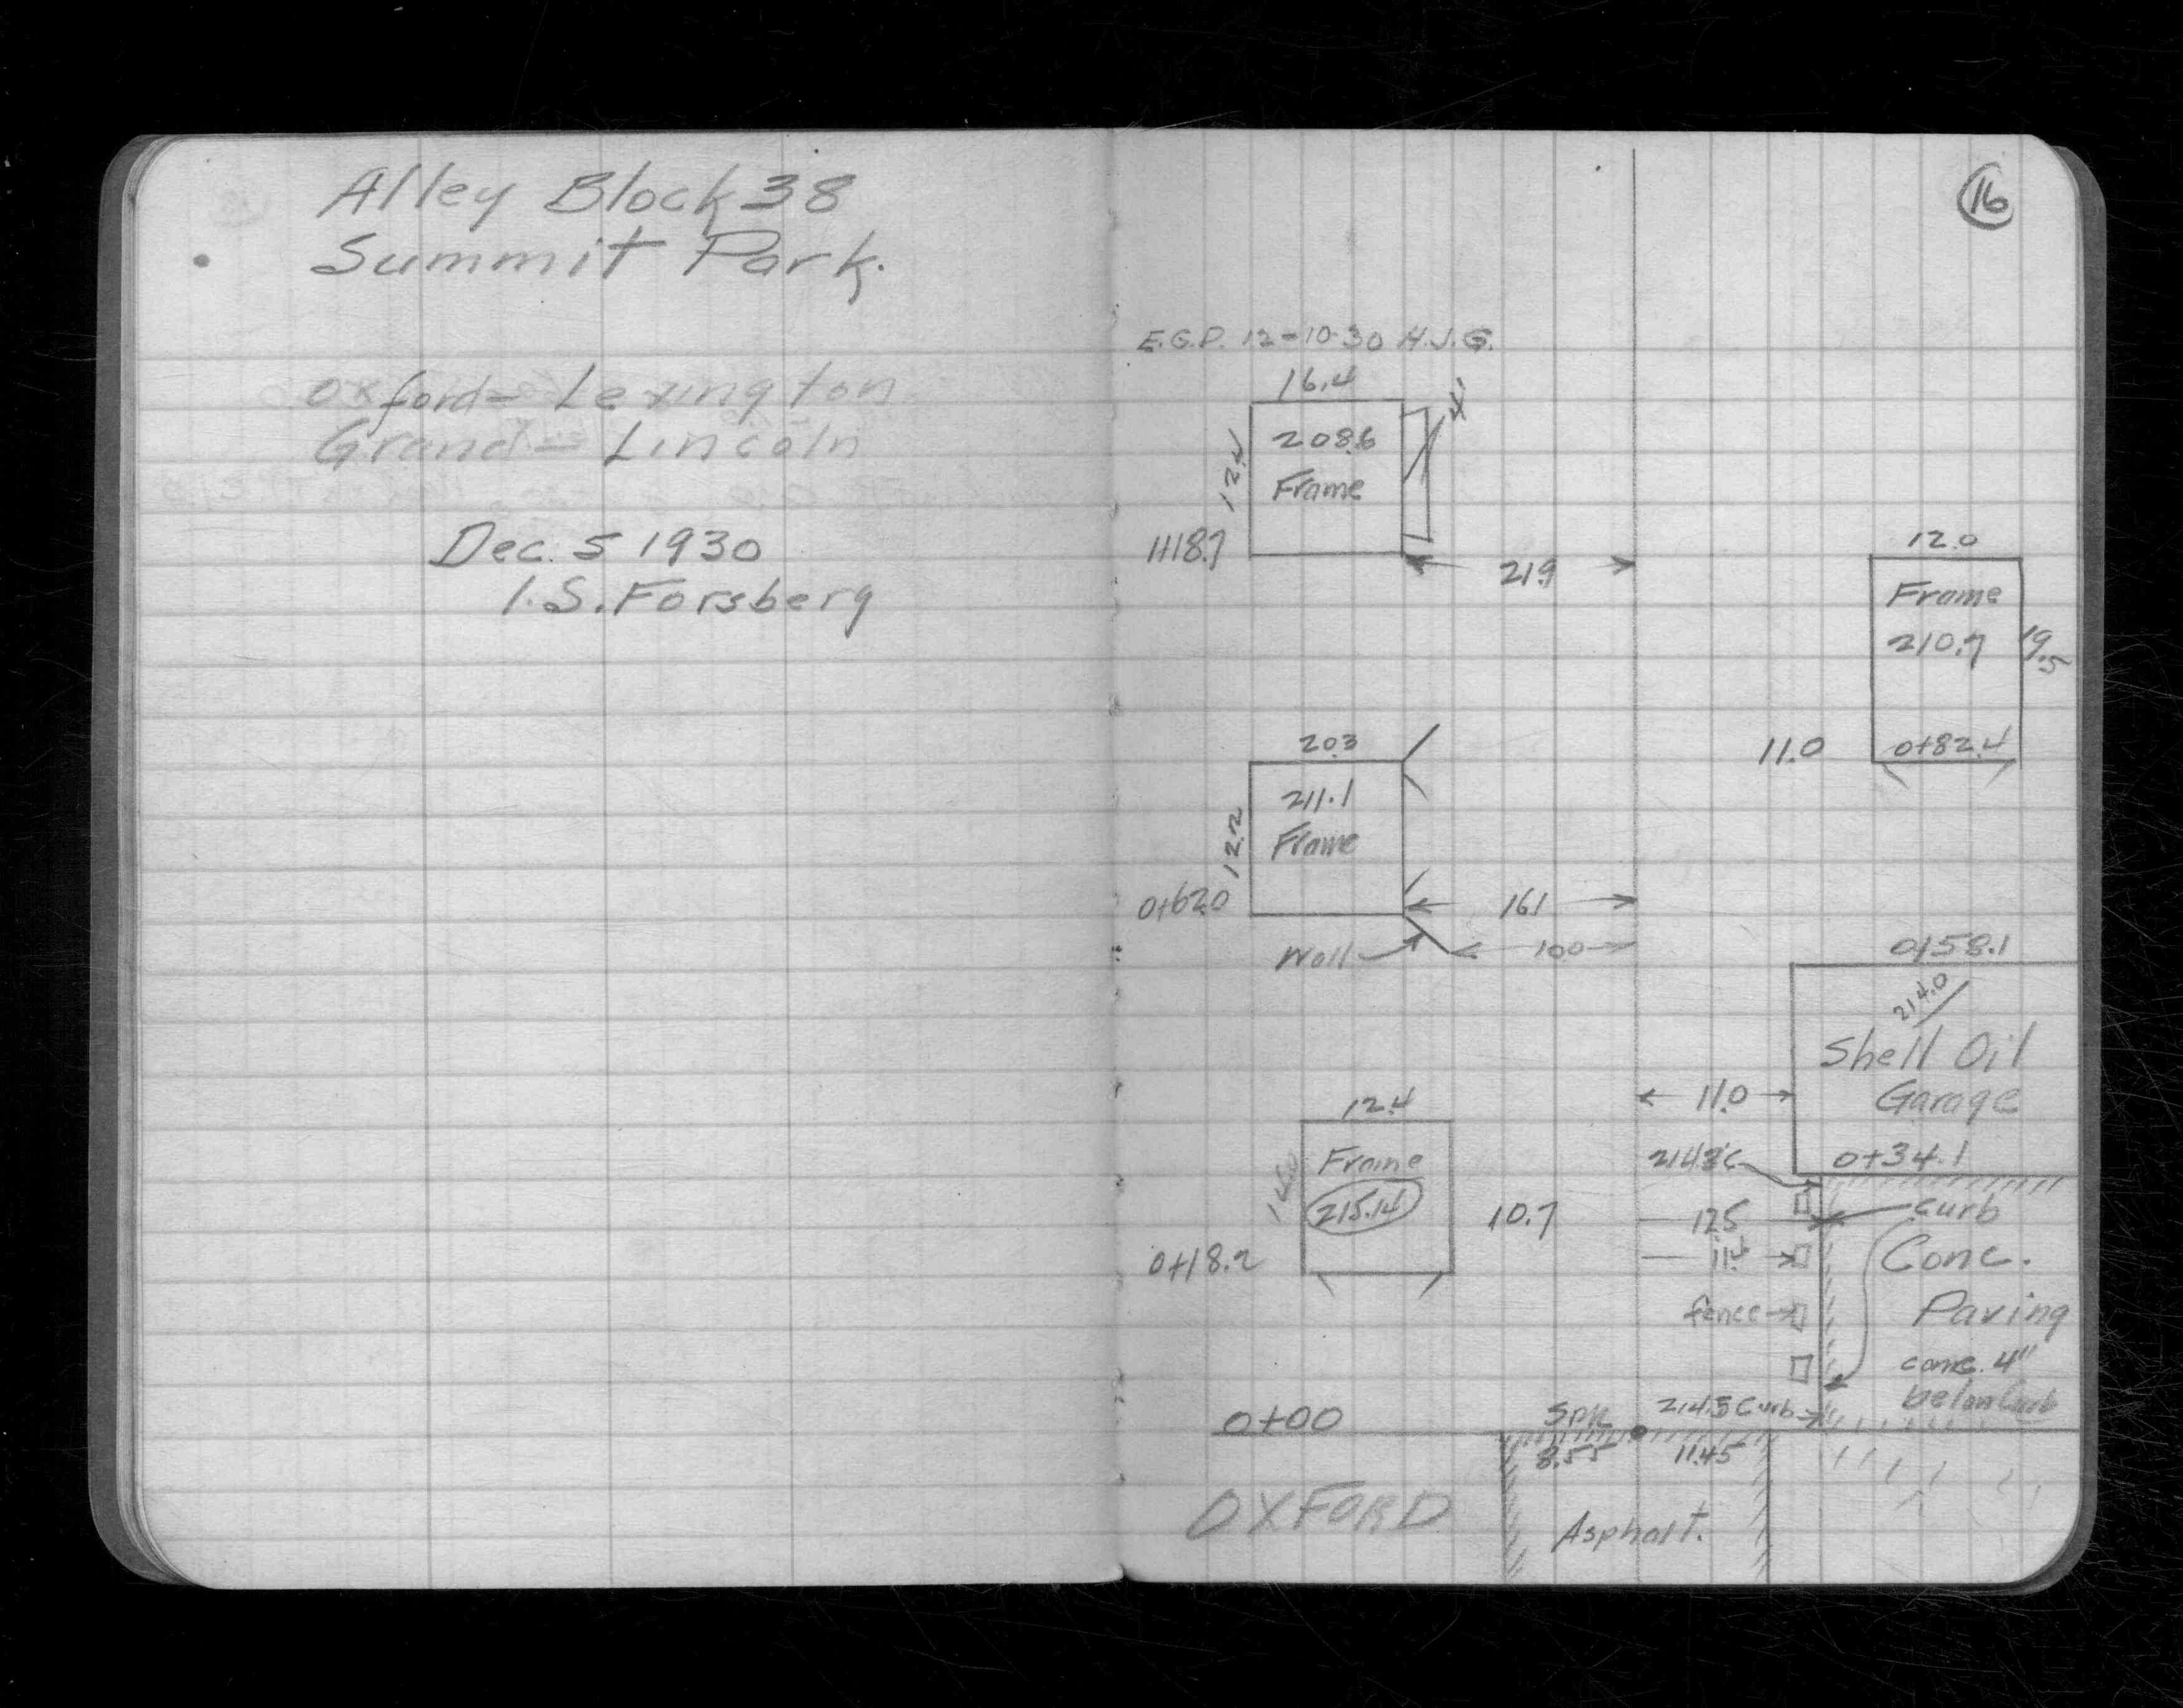 Alley Block 38
Summit Park.
Oxford - Lexington
Grand - Lincoln
Dec. 5 1930
I.S. Forsberg
16
E.G.P. 12-10-30 H.J.G.
16.4
4'
208.6
12.4
Frame
1+18.7
21.9
12.0
Frame
210.7
19.5
11.0
0+82.4
20.3
211.1
12.2
Frame
0+62.0
16.1
Wall
10.0
0+58.1
214.0
Shell Oil
Garage
11.0
12.4
Frame
14.0
215.14
10.7
0+18.2
0+34.1
curb
12.5
11.4
Conc.
fence
Paving
conc. 4"
below Curb
0+00
Spk
214.5 Curb
8.55
11.45
OXFORD
Asphalt.